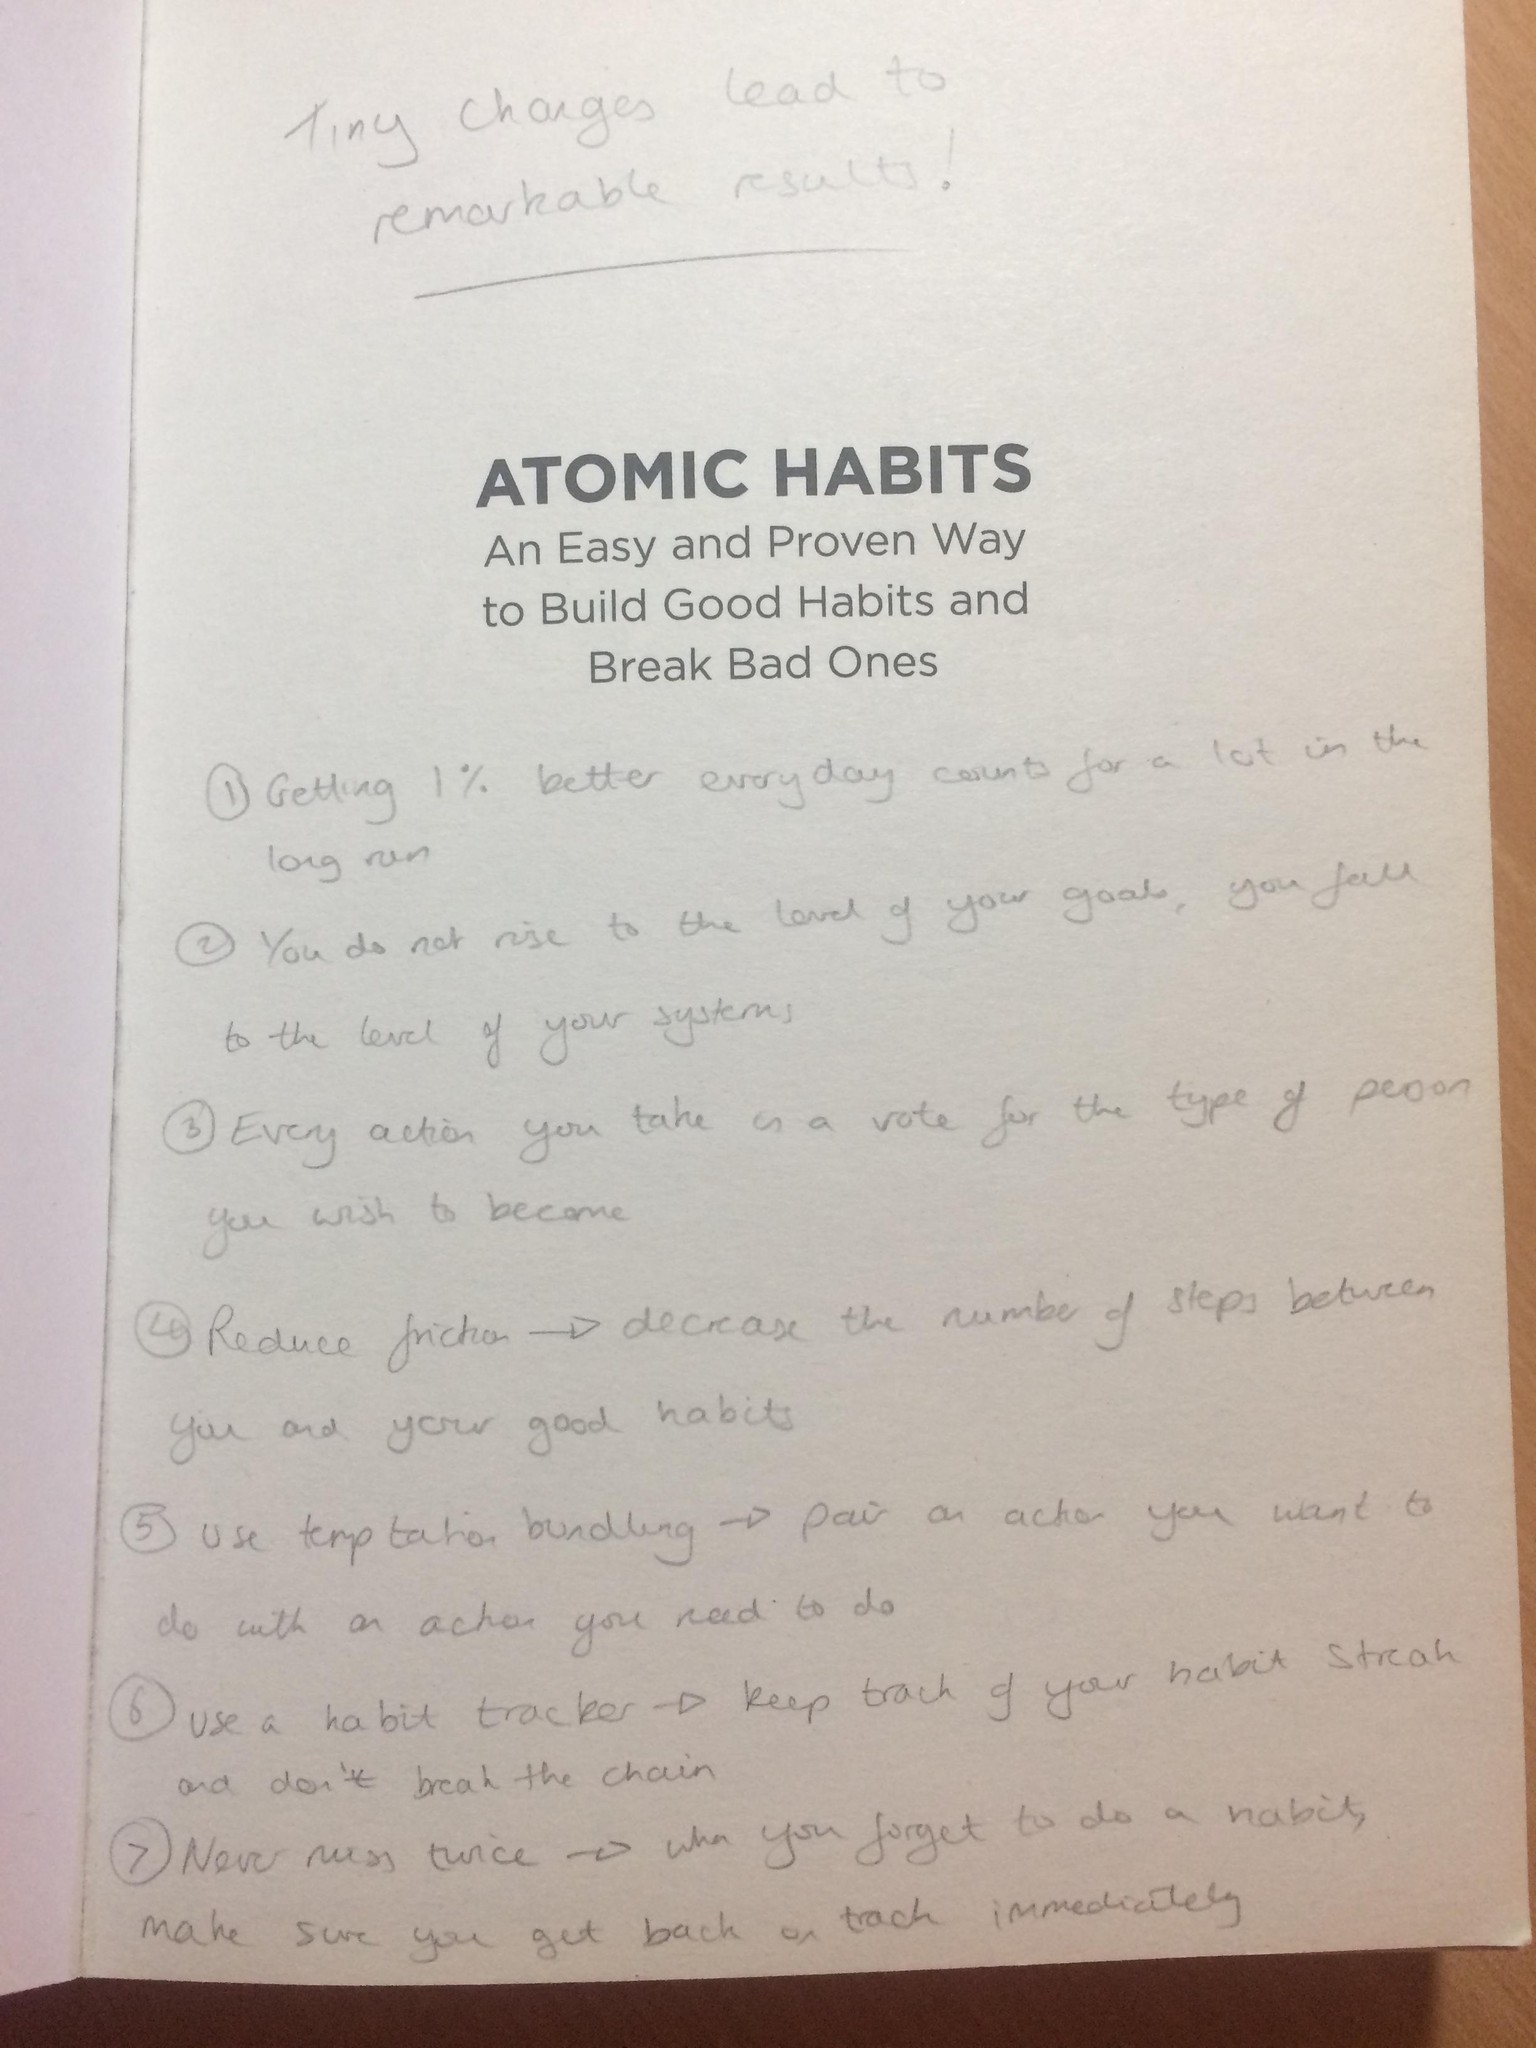 Tiny changes lead to
remarkable results!
ATOMIC HABITS
An Easy and Proven Way
to Build Good Habits and
Break Bad Ones
① Getting 1% better everyday counts for a lot in the
long run
② You do not rise to the level of your goals, you fall
to the level of your systems
③ Every action you take is a vote for the type of person
you wish to become
④ Reduce friction → decrease the number of steps between
you and your good habits
⑤ Use temptation bundling → pair an action you want to
do with an action you need to do
⑥ Use a habit tracker → keep track of your habit streak
and don't break the chain
⑦ Never miss twice → when you forget to do a habit,
make sure you get back on track immediately